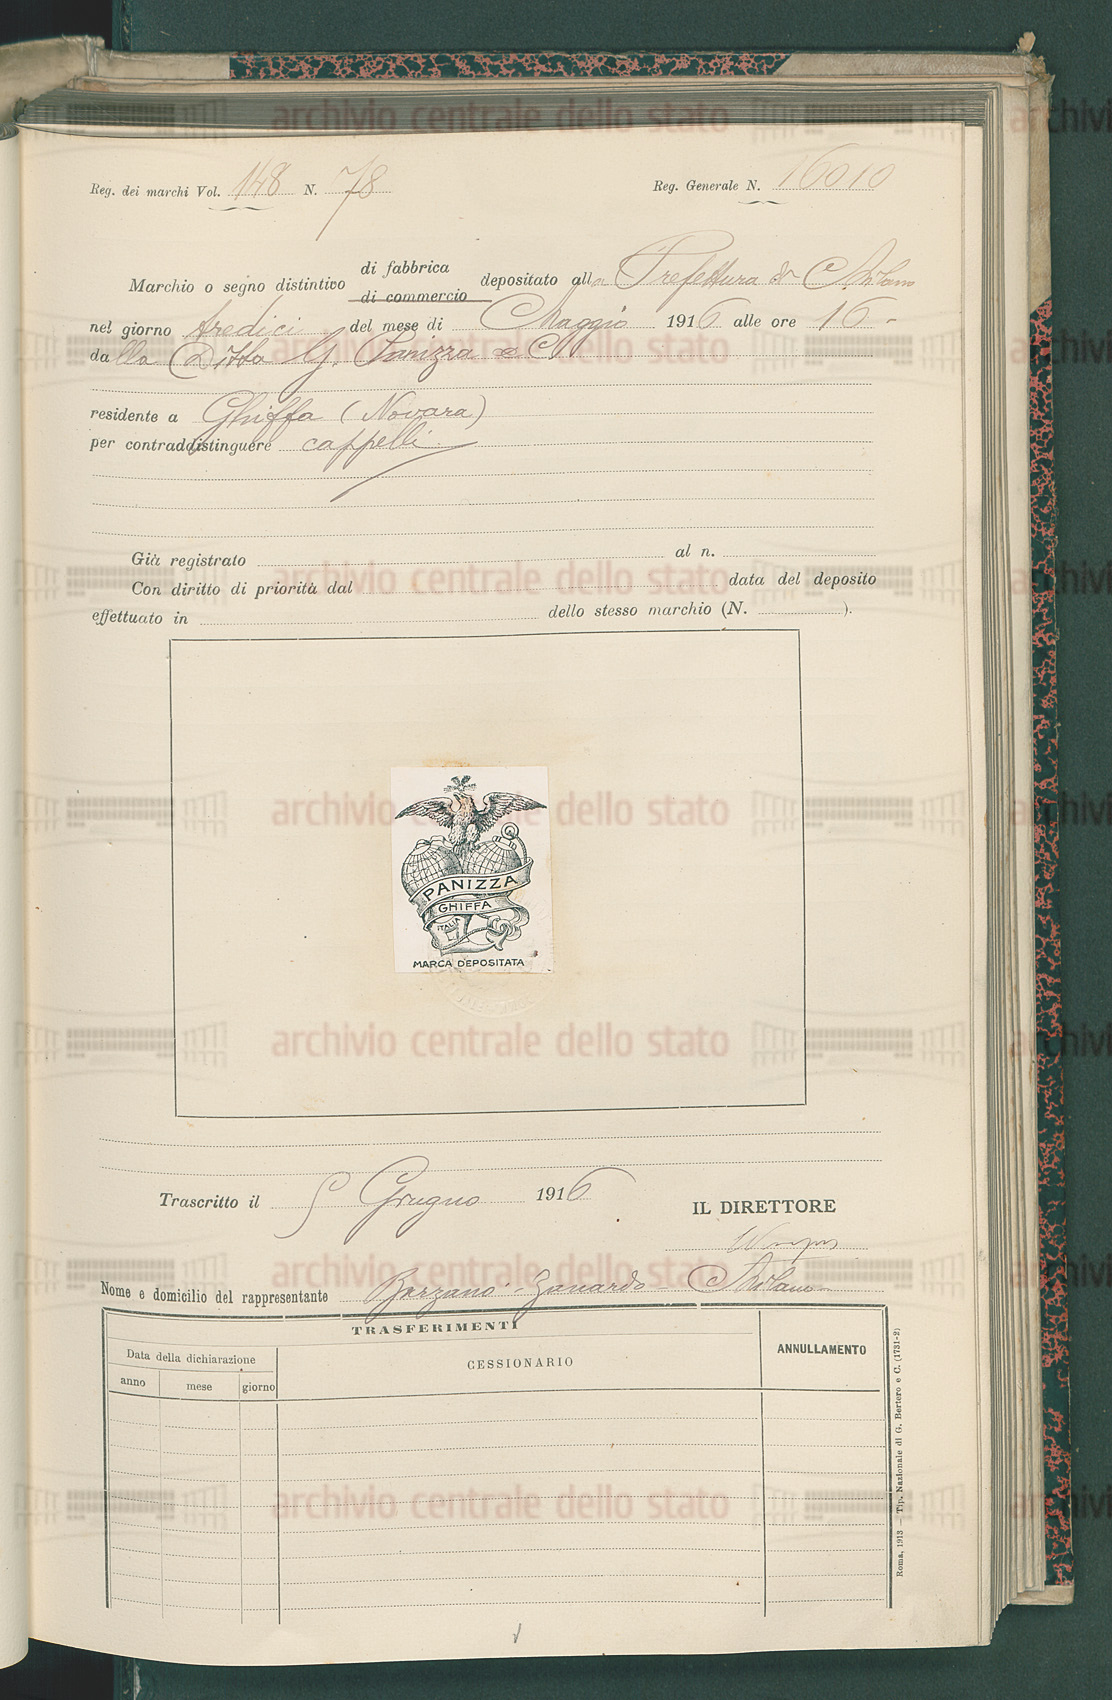 Reg. dei marchi Vol. 148 N. 78
Reg. Generale N. 16010
Marchio o segno distintivo di fabbrica di commercio depositato alla Prefettura di Milano
nel giorno tredici del mese di Maggio 1916 alle ore 16 -
dalla Ditta G. Panizza & C.
residente a Ghiffa (Novara)
per contraddistinguere cappelli
Già registrato al n.
Con diritto di priorità dal data del deposito
effettuato in dello stesso marchio (N. ).
PANIZZA
GHIFFA
ITALIA
MARCA DEPOSITATA
Trascritto il Giugno 1916
IL DIRETTORE
Nome e domicilio del rappresentante Barzanò - Zanardo - Milano
TRASFERIMENTI
Data della dichiarazione
CESSIONARIO
ANNULLAMENTO
anno mese giorno
Roma, 1913 — Tip. Nazionale di G. Bertero e C. (1731-2)
archivio centrale dello stato
archivio centrale dello stato
archivio centrale dello stato
archivio centrale dello stato
archivio centrale dello stato
archivio centrale dello stato
archivio centrale dello stato